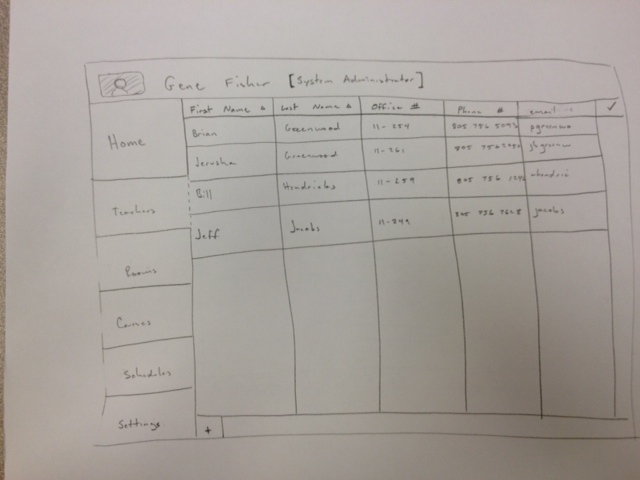 Gene Fisher [System Administrator]
Home
Teachers
Rooms
Courses
Schedules
Settings
First Name Last Name Office # Phone # email
Brian Greenwood 11-254 805 756
Jerusha Greenwood 11-261 805 756
Bill Hendricks 11-259 805 756
Jeff Jacobs 11-249 805 756 jacobs
+